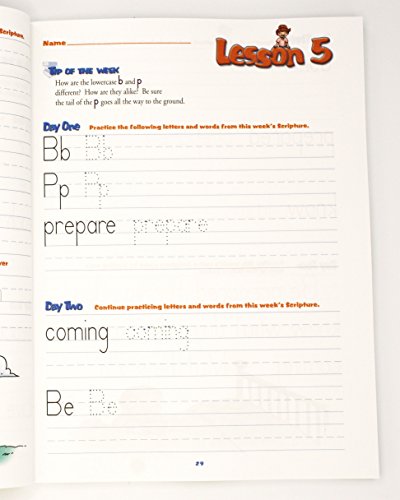 Scripture.
Name
Lesson 5
Tip of the Week
How are the lowercase b and p
different? How are they alike? Be sure
the tail of the p goes all the way to the ground.
Day One Practice the following letters and words from this week's Scripture.
Bb Bb
Pp Pp
prepare prepare
Day Two Continue practicing letters and words from this week's Scripture.
coming coming
Be Be
29